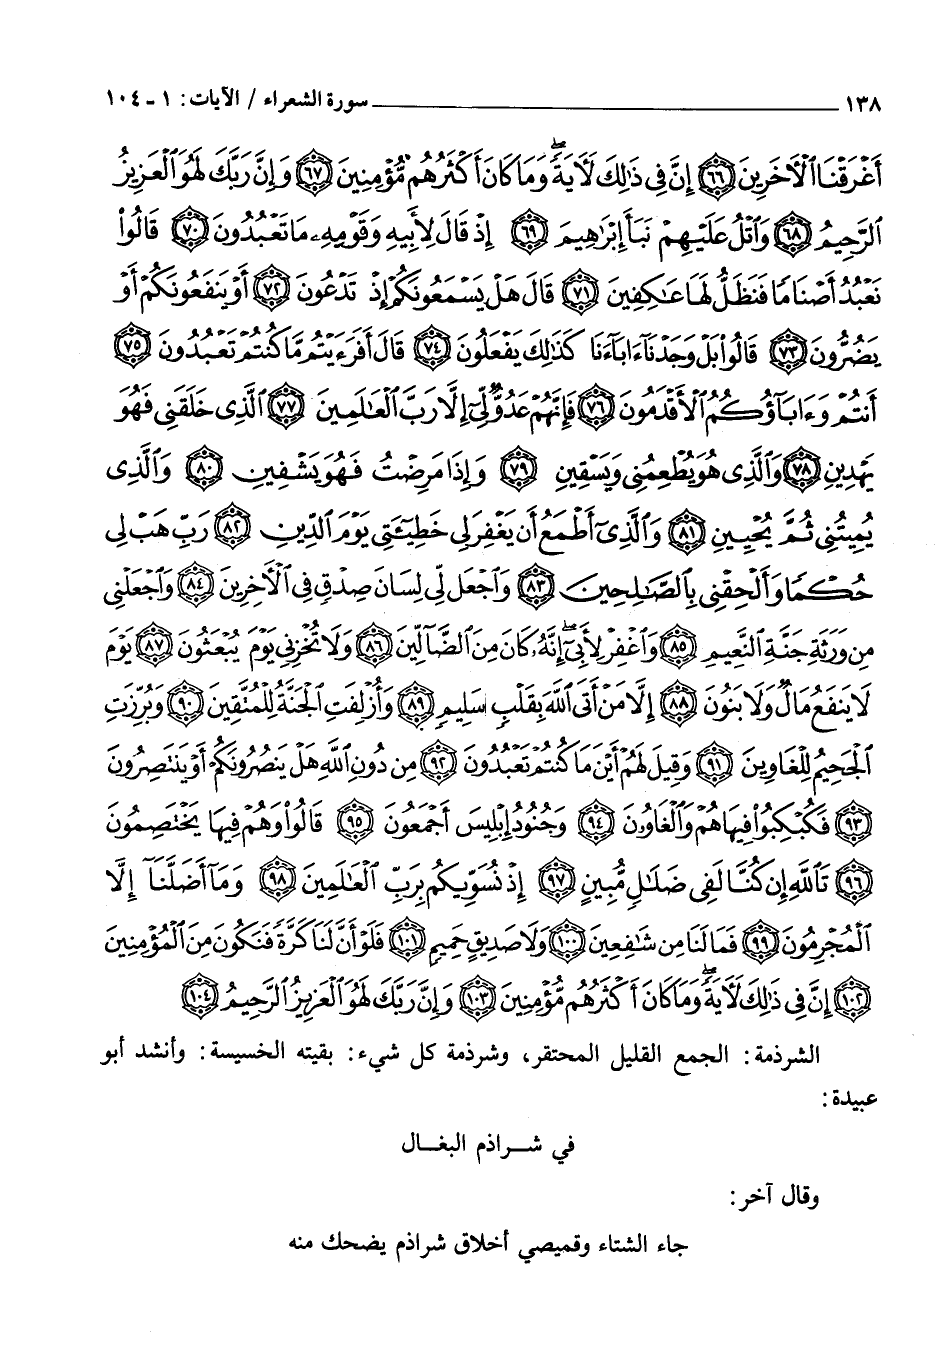 ١٣٨ ــــــــــــــــــــــــــــــ سورة الشعراء / الآيات: ١ ـ ١٠٤
أَغْرَقْنَا ٱلْآخَرِينَ ٦٦ إِنَّ فِى ذَٰلِكَ لَآيَةً ۖ وَمَا كَانَ أَكْثَرُهُم مُّؤْمِنِينَ ٦٧ وَإِنَّ رَبَّكَ لَهُوَ ٱلْعَزِيزُ
ٱلرَّحِيمُ ٦٨ وَٱتْلُ عَلَيْهِمْ نَبَأَ إِبْرَٰهِيمَ ٦٩ إِذْ قَالَ لِأَبِيهِ وَقَوْمِهِۦ مَا تَعْبُدُونَ ٧٠ قَالُوا۟
نَعْبُدُ أَصْنَامًا فَنَظَلُّ لَهَا عَٰكِفِينَ ٧١ قَالَ هَلْ يَسْمَعُونَكُمْ إِذْ تَدْعُونَ ٧٢ أَوْ يَنفَعُونَكُمْ أَوْ
يَضُرُّونَ ٧٣ قَالُوا۟ بَلْ وَجَدْنَآ ءَابَآءَنَا كَذَٰلِكَ يَفْعَلُونَ ٧٤ قَالَ أَفَرَءَيْتُم مَّا كُنتُمْ تَعْبُدُونَ ٧٥
أَنتُمْ وَءَابَآؤُكُمُ ٱلْأَقْدَمُونَ ٧٦ فَإِنَّهُمْ عَدُوٌّ لِّىٓ إِلَّا رَبَّ ٱلْعَٰلَمِينَ ٧٧ ٱلَّذِى خَلَقَنِى فَهُوَ
يَهْدِينِ ٧٨ وَٱلَّذِى هُوَ يُطْعِمُنِى وَيَسْقِينِ ٧٩ وَإِذَا مَرِضْتُ فَهُوَ يَشْفِينِ ٨٠ وَٱلَّذِى
يُمِيتُنِى ثُمَّ يُحْيِينِ ٨١ وَٱلَّذِىٓ أَطْمَعُ أَن يَغْفِرَ لِى خَطِيٓـَٔتِى يَوْمَ ٱلدِّينِ ٨٢ رَبِّ هَبْ لِى
حُكْمًا وَأَلْحِقْنِى بِٱلصَّٰلِحِينَ ٨٣ وَٱجْعَل لِّى لِسَانَ صِدْقٍ فِى ٱلْآخِرِينَ ٨٤ وَٱجْعَلْنِى
مِن وَرَثَةِ جَنَّةِ ٱلنَّعِيمِ ٨٥ وَٱغْفِرْ لِأَبِىٓ إِنَّهُۥ كَانَ مِنَ ٱلضَّآلِّينَ ٨٦ وَلَا تُخْزِنِى يَوْمَ يُبْعَثُونَ ٨٧ يَوْمَ
لَا يَنفَعُ مَالٌ وَلَا بَنُونَ ٨٨ إِلَّا مَنْ أَتَى ٱللَّهَ بِقَلْبٍ سَلِيمٍ ٨٩ وَأُزْلِفَتِ ٱلْجَنَّةُ لِلْمُتَّقِينَ ٩٠ وَبُرِّزَتِ
ٱلْجَحِيمُ لِلْغَاوِينَ ٩١ وَقِيلَ لَهُمْ أَيْنَ مَا كُنتُمْ تَعْبُدُونَ ٩٢ مِن دُونِ ٱللَّهِ هَلْ يَنصُرُونَكُمْ أَوْ يَنتَصِرُونَ
٩٣ فَكُبْكِبُوا۟ فِيهَا هُمْ وَٱلْغَاوُۥنَ ٩٤ وَجُنُودُ إِبْلِيسَ أَجْمَعُونَ ٩٥ قَالُوا۟ وَهُمْ فِيهَا يَخْتَصِمُونَ
٩٦ تَٱللَّهِ إِن كُنَّا لَفِى ضَلَٰلٍ مُّبِينٍ ٩٧ إِذْ نُسَوِّيكُم بِرَبِّ ٱلْعَٰلَمِينَ ٩٨ وَمَآ أَضَلَّنَآ إِلَّا
ٱلْمُجْرِمُونَ ٩٩ فَمَا لَنَا مِن شَٰفِعِينَ ١٠٠ وَلَا صَدِيقٍ حَمِيمٍ ١٠١ فَلَوْ أَنَّ لَنَا كَرَّةً فَنَكُونَ مِنَ ٱلْمُؤْمِنِينَ
١٠٢ إِنَّ فِى ذَٰلِكَ لَآيَةً ۖ وَمَا كَانَ أَكْثَرُهُم مُّؤْمِنِينَ ١٠٣ وَإِنَّ رَبَّكَ لَهُوَ ٱلْعَزِيزُ ٱلرَّحِيمُ ١٠٤
الشرذمة: الجمع القليل المحتقر، وشرذمة كل شيء: بقيته الخسيسة: وأنشد أبو
عبيدة:
في شــراذم البغــال
وقال آخر:
جاء الشتاء وقميصي أخلاق شراذم يضحك منه